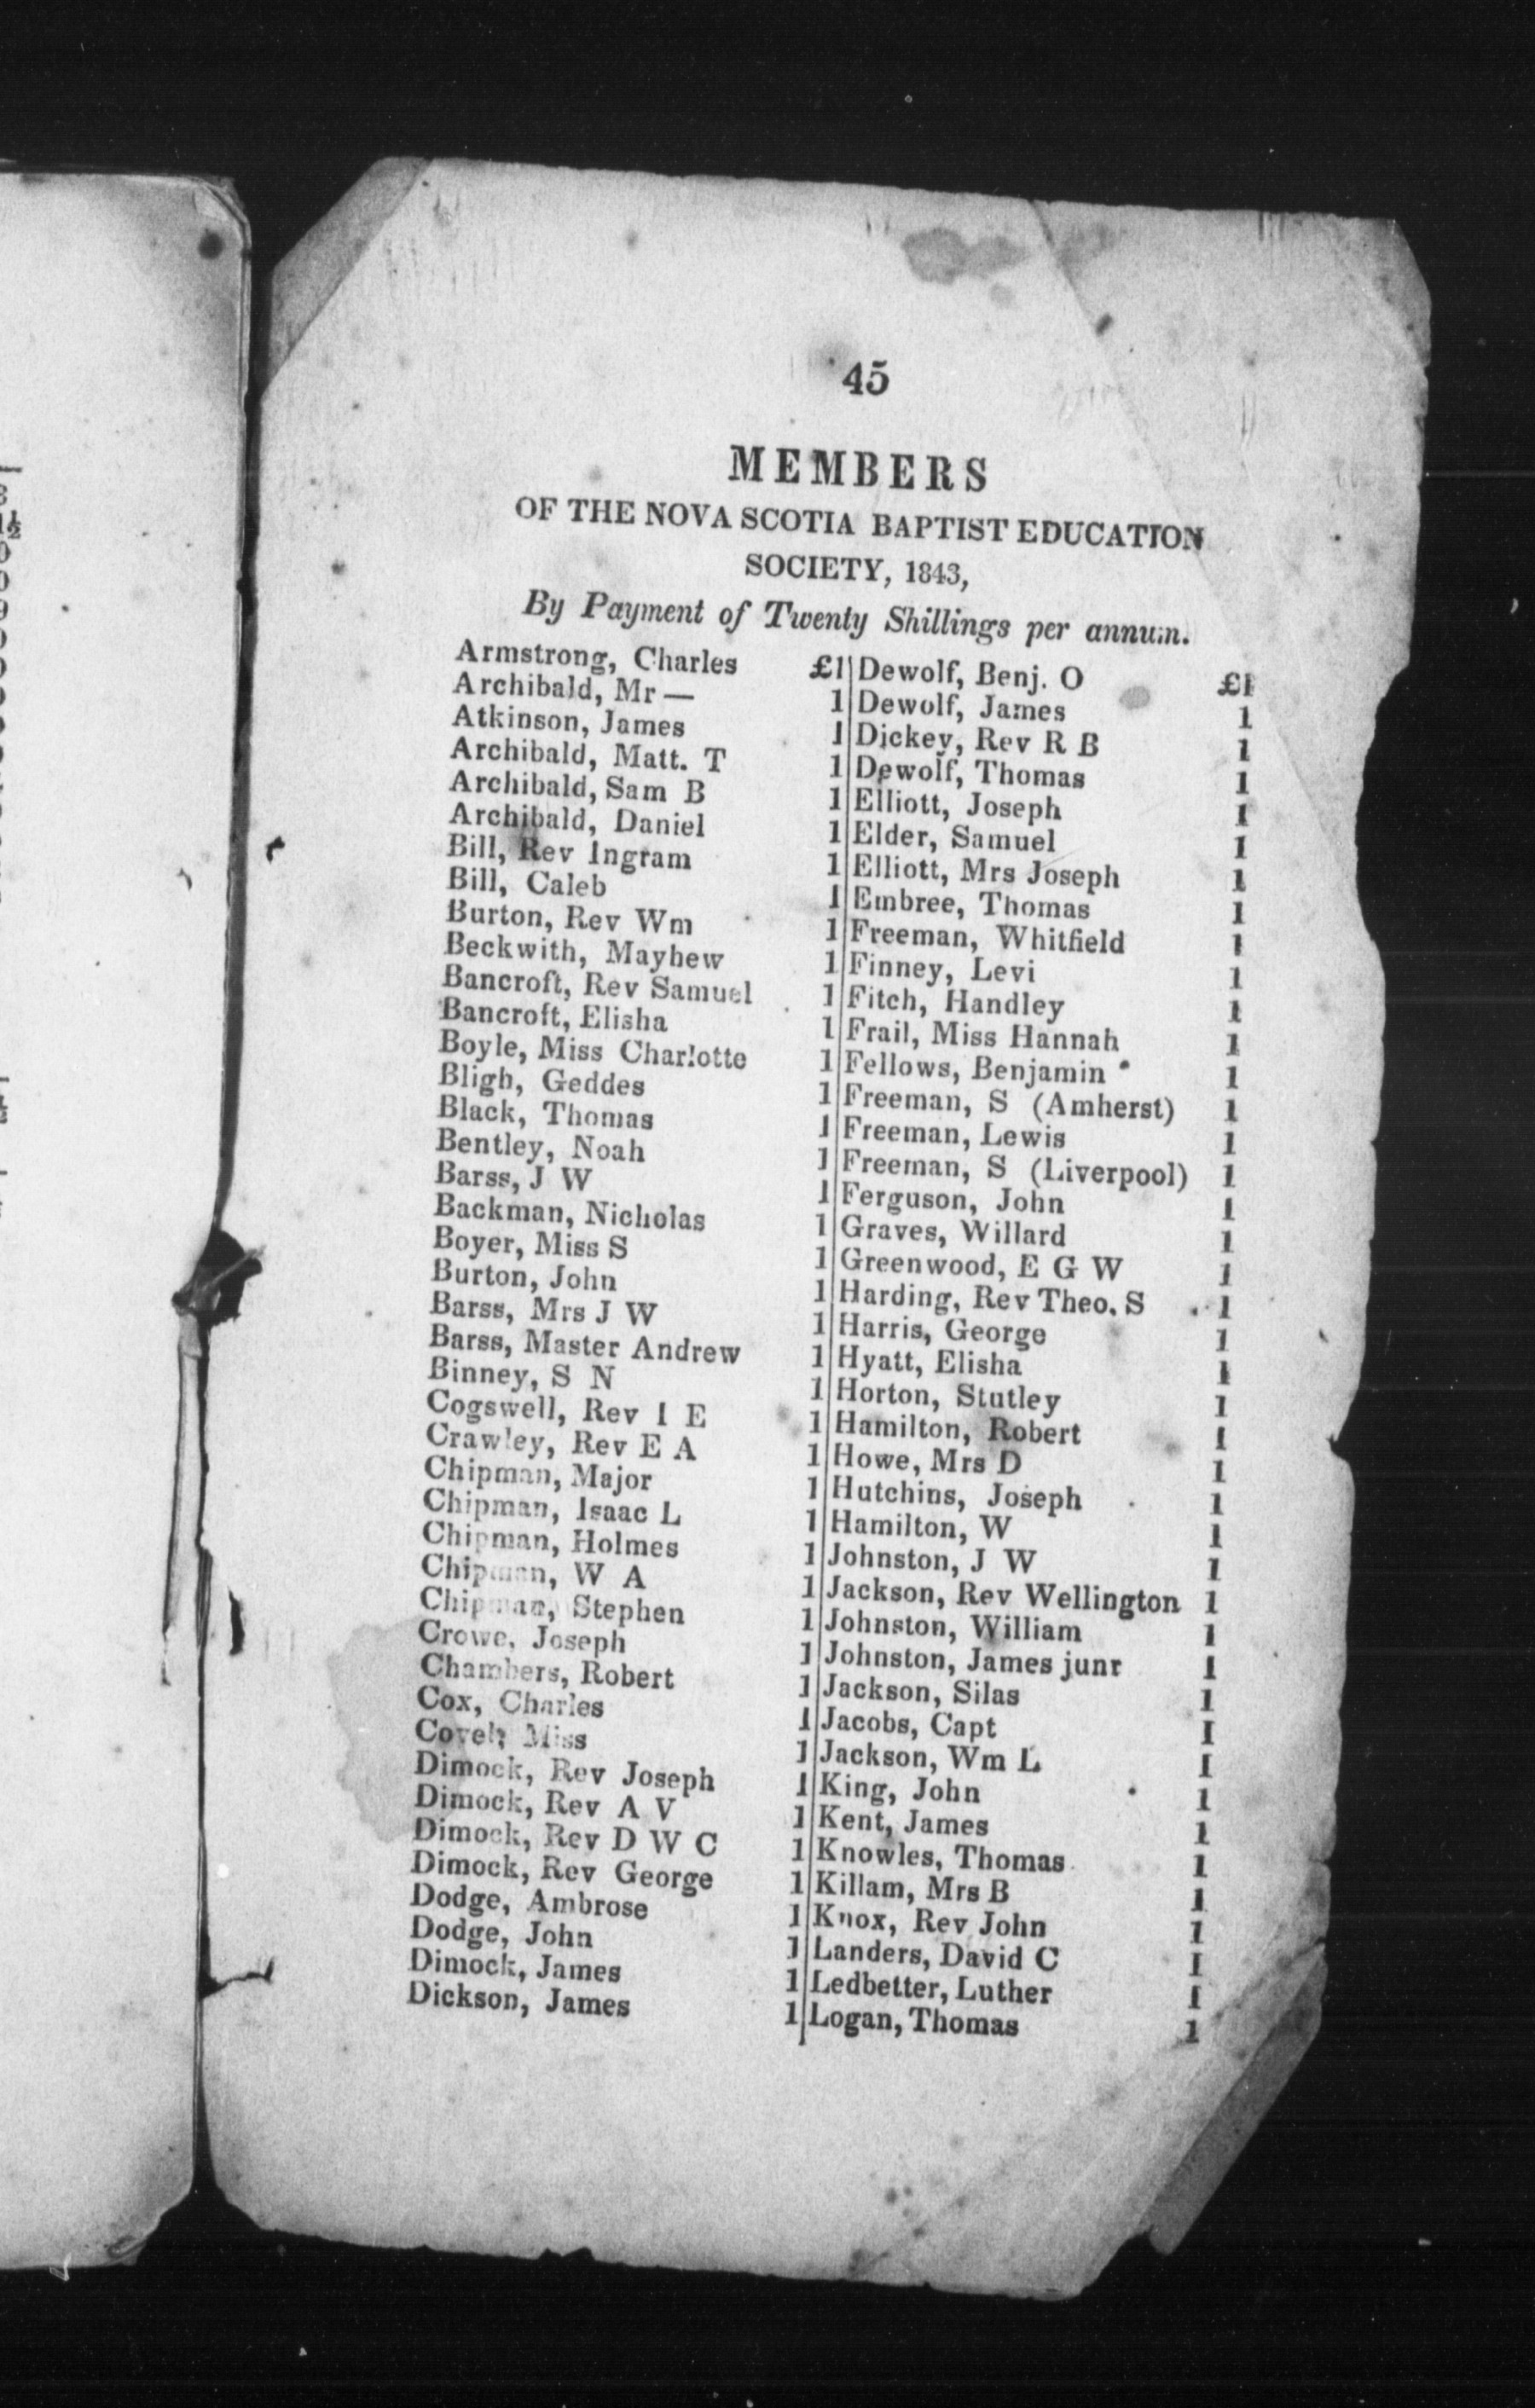 45
MEMBERS
OF THE NOVA SCOTIA BAPTIST EDUCATION
SOCIETY, 1843,
By Payment of Twenty Shillings per annum.
Armstrong, Charles £1
Archibald, Mr — 1
Atkinson, James 1
Archibald, Matt. T 1
Archibald, Sam B 1
Archibald, Daniel 1
Bill, Rev Ingram 1
Bill, Caleb 1
Burton, Rev Wm 1
Beckwith, Mayhew 1
Bancroft, Rev Samuel 1
Bancroft, Elisha 1
Boyle, Miss Charlotte 1
Bligh, Geddes 1
Black, Thomas 1
Bentley, Noah 1
Barss, J W 1
Backman, Nicholas 1
Boyer, Miss S 1
Burton, John 1
Barss, Mrs J W 1
Barss, Master Andrew 1
Binney, S N 1
Cogswell, Rev I E 1
Crawley, Rev E A 1
Chipman, Major 1
Chipman, Isaac L 1
Chipman, Holmes 1
Chipman, W A 1
Chipman, Stephen 1
Crowe, Joseph 1
Chambers, Robert 1
Cox, Charles 1
Miss 1
Dimock, Rev Joseph 1
Dimock, Rev A V 1
Dimock, Rev D W C 1
Dimock, Rev George 1
Dodge, Ambrose 1
Dodge, John 1
Dimock, James 1
Dickson, James 1
Dewolf, Benj. O £1
Dewolf, James 1
Dickey, Rev R B 1
Dewolf, Thomas 1
Elliott, Joseph 1
Elder, Samuel 1
Elliott, Mrs Joseph 1
Embree, Thomas 1
Freeman, Whitfield 1
Finney, Levi 1
Fitch, Handley 1
Frail, Miss Hannah 1
Fellows, Benjamin 1
Freeman, S (Amherst) 1
Freeman, Lewis 1
Freeman, S (Liverpool) 1
Ferguson, John 1
Graves, Willard 1
Greenwood, E G W 1
Harding, Rev Theo. S 1
Harris, George 1
Hyatt, Elisha 1
Horton, Stutley 1
Hamilton, Robert 1
Howe, Mrs D 1
Hutchins, Joseph 1
Hamilton, W 1
Johnston, J W 1
Jackson, Rev Wellington 1
Johnston, William 1
Johnston, James junr 1
Jackson, Silas 1
Jacobs, Capt 1
Jackson, Wm L 1
King, John 1
Kent, James 1
Knowles, Thomas 1
Killam, Mrs B 1
Knox, Rev John 1
Landers, David C 1
Ledbetter, Luther 1
Logan, Thomas 1